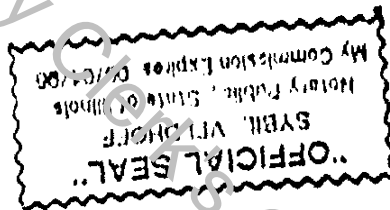 "OFFICIAL SEAL"
SYBIL VELDHOFF
Notary Public, State of Illinois
My Commission Expires
y Clerk's